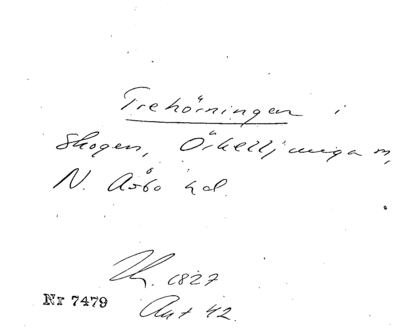 Trehörningen i
Skogen, Örkelljunga sn,
N. Åsbo hd.
1827
Nr 7479
Aut 42.